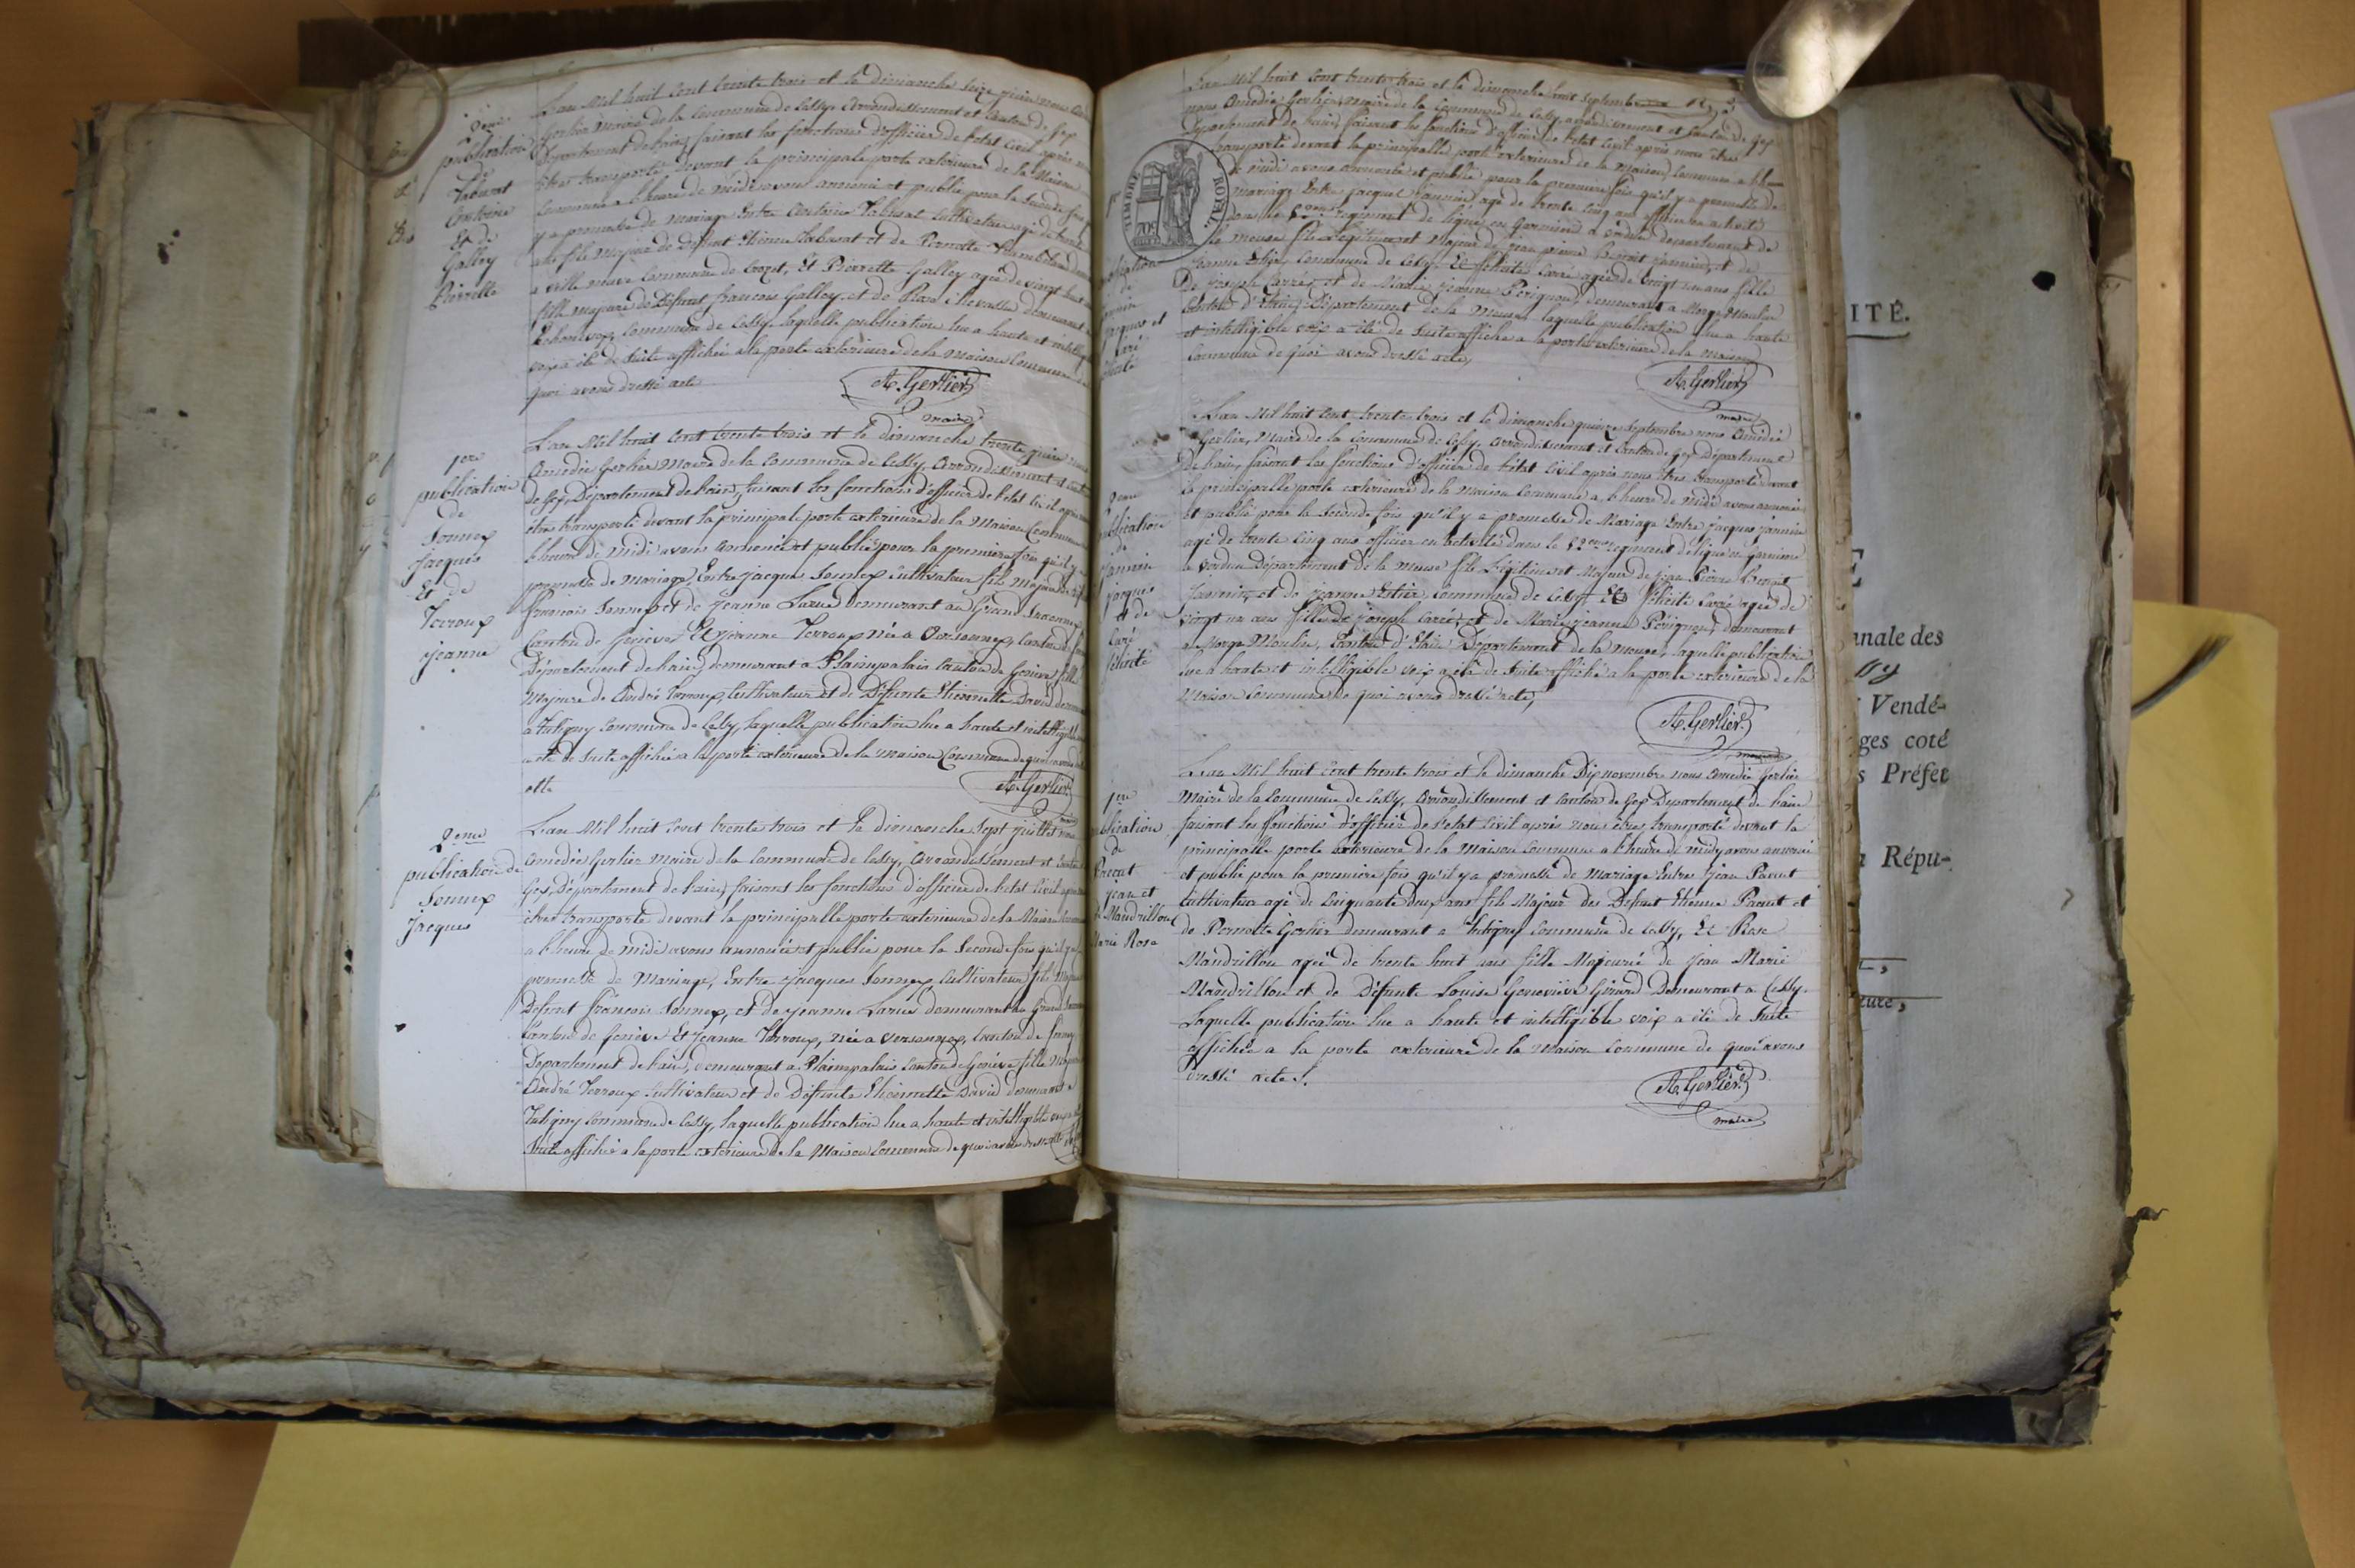 2eme
publication
de
Taburat
Antoine
Et de
Galley
Pierrette
L'an Mil huit Cent trente trois et le dimanche Seize juin nous
Gerlier Maire de la Commune de Cessy, Arrondissement et Canton de Gex
Département de l'ain, faisant les fonctions d'officier de l'etat Civil après
êtres transporté devant la principale porte exterieure de la Maison
Commune a l'heure de midi avons annoncé et publié pour la Seconde fois
y a promesse de Mariage Entre Antoine Taburat Cultivateur agé de trente
ans fils Majeur de Défunt Etienne Taburat et de Pernette
a ville neuve Commune de Crozet, Et Pierrette Galley agée de vingt huit
fille majeure de Défunt francois Galley et de Rose Chevasse demeurant
Echenevex, Commune de Cessy, laquelle publication lue a haute et intelligible
voix a été de Suite affichée a la porte exterieure de la Maison Commune de
quoi avons dressé acte
A. Gerlier
maire
1ere
publication
de
Sonnex
Jacques
Et de
Terroux
Jeanne
L'an Mil huit Cent trente trois et le dimanche trente juin nous
Amedée Gerlier Maire de la Commune de Cessy, Arrondissement et Canton
de Gex, Département de l'ain, faisant les fonctions d'officier de l'etat Civil après nous
êtres transporté devant la principale porte exterieure de la Maison Commune
l'heure de midi avons Annoncé et publié pour la premiere fois qu'il y a
promesse de Mariage, Entre Jacques Sonnex Cultivateur fils Majeur de Défunt
francois Sonnex et de Jeanne Larue Demeurant au Grand Saconnex
Canton de Genève, Et Jeanne Terroux née a Versonnex, Canton de
Département de l'ain, demeurant a Plainpalais Canton de Genève, fille
Majeure de André Terroux, Cultivateur et de Défunte Etiennette David
a Tutigny Commune de Cessy, laquelle publication lue a haute et intelligible
a été de Suite affichée a la porte exterieure de la maison Commune de quoi avons
acte
A. Gerlier
maire
2eme
publication de
Sonnex
Jacques
L'an Mil huit Cent trente trois et le dimanche Sept juillet nous
Amedée Gerlier Maire de la Commune de Cessy, Arrondissement et Canton
Gex, Département de l'ain, faisant les fonctions d'officier de l'etat Civil après
êtres transporté devant la principalle porte exterieure de la Maison
a l'heure de midi avons annoncé et publié pour la Seconde fois qu'il y a
promesse de Mariage, Entre Jacques Sonnex Cultivateur fils Majeur
Défunt françois Sonnex, et de Jeanne Larue demeurant au Grand
Canton de Genève Et Jeanne Terroux, née a Versonnex, Canton de ferney
Département de l'ain, demeurant a Plainpalais Canton de Genève fille Majeure
André Terroux Cultivateur et de Défunte Etiennette David demeurant a
Tutigny Commune de Cessy, laquelle publication lue a haute et intelligible
Suite affichée a la porte exterieure de la Maison Commune de quoi avons dressé
L'an Mil huit Cent trente trois et le dimanche huit Septembre
nous Amedée Gerlier, Maire de la Commune de Cessy, arrondissement et Canton de Gex
Département de l'ain, faisant les fonctions d'officier de l'etat Civil après nous êtres
transporté devant la principalle porte exterieure de la maison Commune a
de midi avons annoncé et publié pour la premiere fois qu'il y a promesse de
mariage Entre jacques Jeannin agé de trente Cinq ans officier en activité
dans le régiment de ligne en Garnison a Verdun departement de
la meuse fils Légitime et Majeur de Jean pierre Benoit Jeannin, et de
Jeanne Estier, Commune de Cessy, Et félicité Carré agée de vingt un ans fille
De joseph Carré, et de Marie jeanne Perignon, demeurant a Morge Moulin
Canton d'Etain, Département de la Meuse, laquelle publication lue a haute
et intelligible voix a été de Suite affiché a la porte exterieure de la maison
Commune de quoi avons dressé acte,
TIMBRE ROYAL
70c
A. Gerlier
maire
2eme
publication
de
Jeannin
Jacques
et de
Carré
félicité
L'an Mil huit Cent trente trois et le dimanche quinze Septembre nous Amedée
Gerlier, Maire de la Commune de Cessy, Arrondissement et Canton de Gex Département
de l'ain, faisant les fonctions d'officier de l'etat Civil après nous êtres transporté devant
la principalle porte exterieure de la maison Commune a l'heure de midi avons annoncé
et publié pour la Seconde fois qu'il y a promesse de Mariage Entre jacques jeannin
agé de trente Cinq ans officier en activité dans le régiment de ligne en Garnison
a Verdun Département de la Meuse fils Légitime et Majeur de jean Pierre Benoit
Jeannin, et de jeanne Estier, Commune de Cessy Et félicité Carré agée de
vingt un ans fille de joseph Carré, et de Marie jeanne Perignon, demeurant
a Morge Moulin, Canton d'Etain Département de la Meuse, laquelle publication
lue a haute et intelligible voix a été de Suite affiché a la porte exterieure de la
Maison Commune de quoi avons dressé acte,
A. Gerlier
maire
1ere
publication
de
Pacout
Jean et
de Mandrillon
Marie Rose
L'an Mil huit Cent trente trois et le dimanche Dix novembre nous Amedée Gerlier
Maire de la Commune de Cessy, Arrondissement et Canton de Gex Département de l'ain
faisant les fonctions d'officier de l'etat Civil après nous êtres transporté devant la
principalle porte exterieure de la Maison Commune a l'heure de midy avons annoncé
et publié pour la premiere fois qu'il y a promesse de Mariage Entre Jean Pacout
Cultivateur agé de Cinquante Deux ans fils Majeur des Défunt Etienne Pacout et
de Pernette Gerlier demeurant a Tutigny Commune de Cessy, Et Rose
Mandrillon agée de trente huit ans fille Majeure de Jean Marie
Mandrillon et de Défunte Louise Geneviève Girard Demeurant a Cessy.
Laquelle publication lue a haute et intelligible voix a été de Suite
affichée a la porte exterieure de la Maison Commune de quoi avons
dressé acte.
A. Gerlier
maire
ITÉ.
E
nnale des
Vendé-
ges coté
s Préfet
Répu-